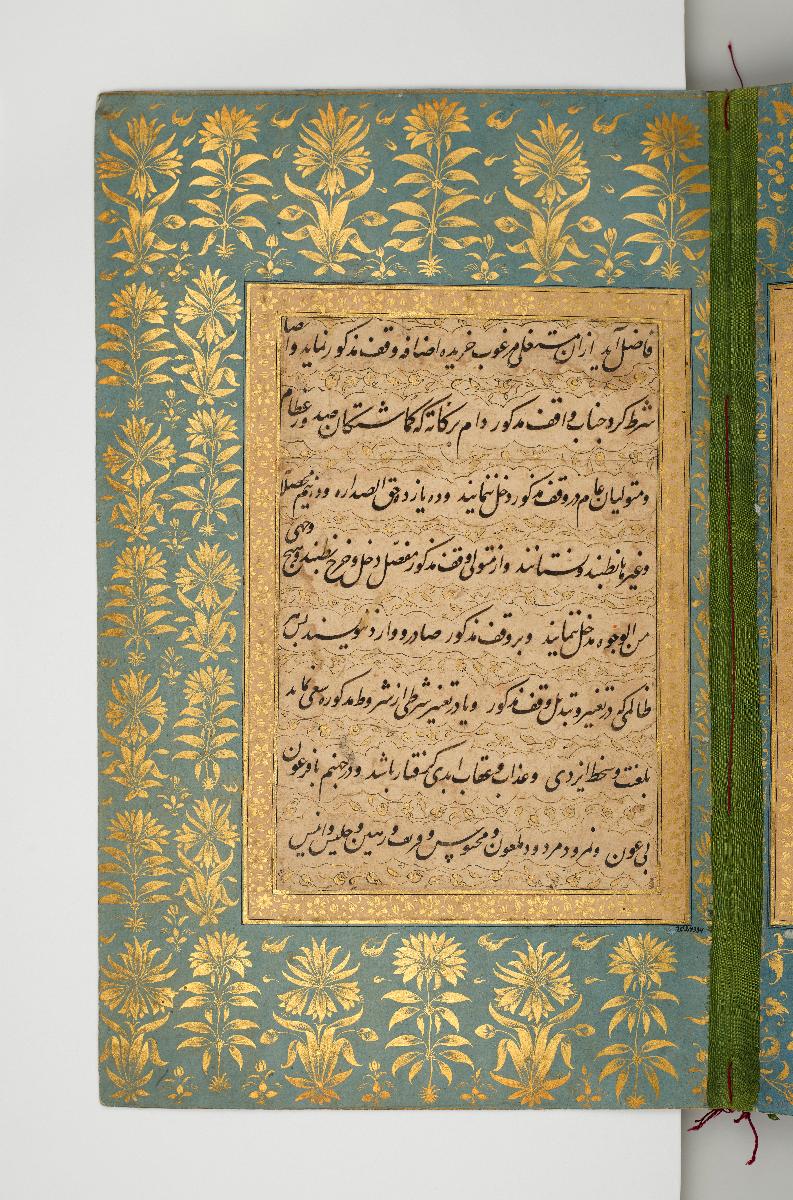 فاضل آید ازان مستغلی مرغوب خریده اضافه وقف مذکور نماید وایضا
شرط کرد جناب واقف مذکور دام برکاته که گماشتگان صدور عظام
ومتولیان عام در وقف مذکور دخل ننمایند وده یازده وحق الصداره ودهنیم محصلا
وغیرها نطلبند ونستانند واز متولی وقف مذکور مفصل دخل وخرج نطلبند وبهیچ وجهی
من الوجوه مدخل ننمایند وبر وقف مذکور صادر ووارد ننویسند پس هر
ظالمی که در تغییر وتبدیل وقف مذکور ویا در تغییر شرطی از شروط مذکوره سعی نماید
بلعنت وسخط ایزدی وعذاب وعقاب ابدی گرفتار باشد ودر جهنم با فرعون
بی عون ونمرود مردود ملعون ومحبوس وقریف ورهین وجلیس وانیس